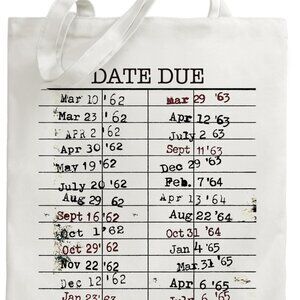 DATE DUE
Mar 10 '62 Mar 29 '63
Mar 23 '62 Apr 12 '63
APR 2 '62 July 2 63
Apr 30 '62 Sept 11 '63
May 19 '62 Dec 29 '63
July 20 '62 Feb. 7 '64
Aug 29 62 Apr 13 '64
Sept 16 '62 Aug 22 '64
Oct 1 '62 Oct 31 '64
Oct 29 '62 Jan 4 '65
Nov 22 '62 Mar. 31 '65
Dec 12 '62 Apr 6 '65
Jan 23 '63